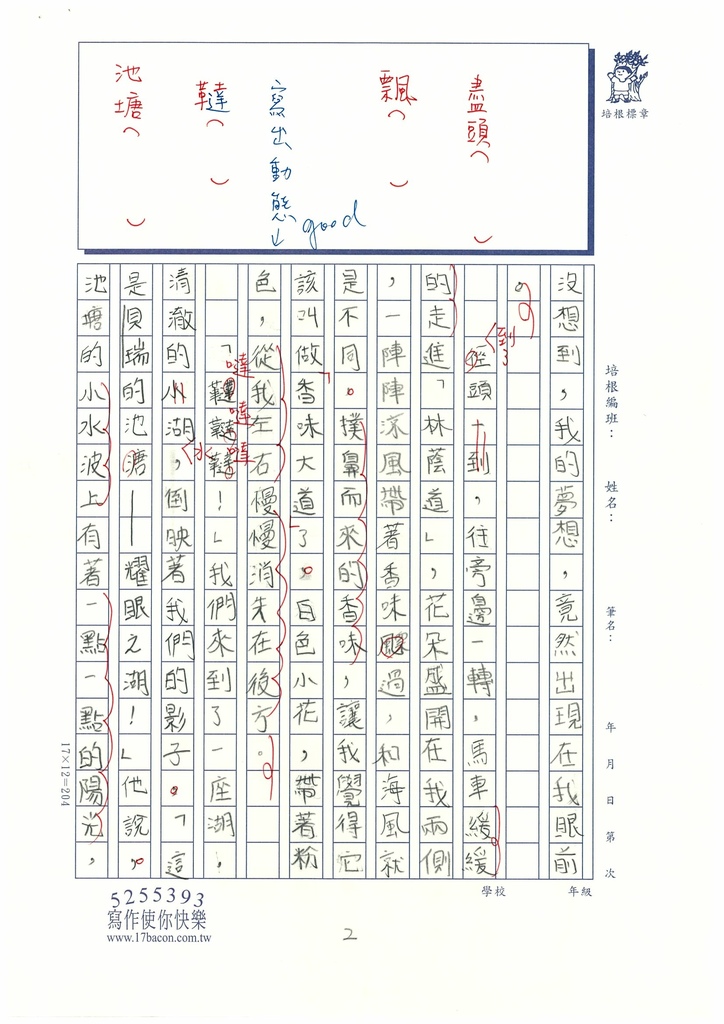 盡頭（ ）
飄（ ）
寫出動態↓good
韃（ ）
池塘（ ）
培根標章
培根編班：
姓名：
筆名：
年 月 日 第 次
沒想到，我的夢想，竟然出現在我眼前
。
徑頭十到，往旁邊一轉，馬車緩緩
到了
的走進「林蔭道」，花朵盛開在我兩側
，一陣陣涼風帶著香味飄過，和海風就
是不同。撲鼻而來的香味，讓我覺得它
該叫做「香味大道」了。白色小花，帶著粉
色，從我左右慢慢消失在後方。
「韃韃韃！」我們來到了一座湖，
噠噠噠
清澈的小湖，倒映著我們的影子。「這
水
是貝瑞的池塘——耀眼之湖！」他說。
池塘的小水波上有著一點一點的陽光，
17×12=204
學校
年級
5255393
寫作使你快樂
www.17bacon.com.tw
2